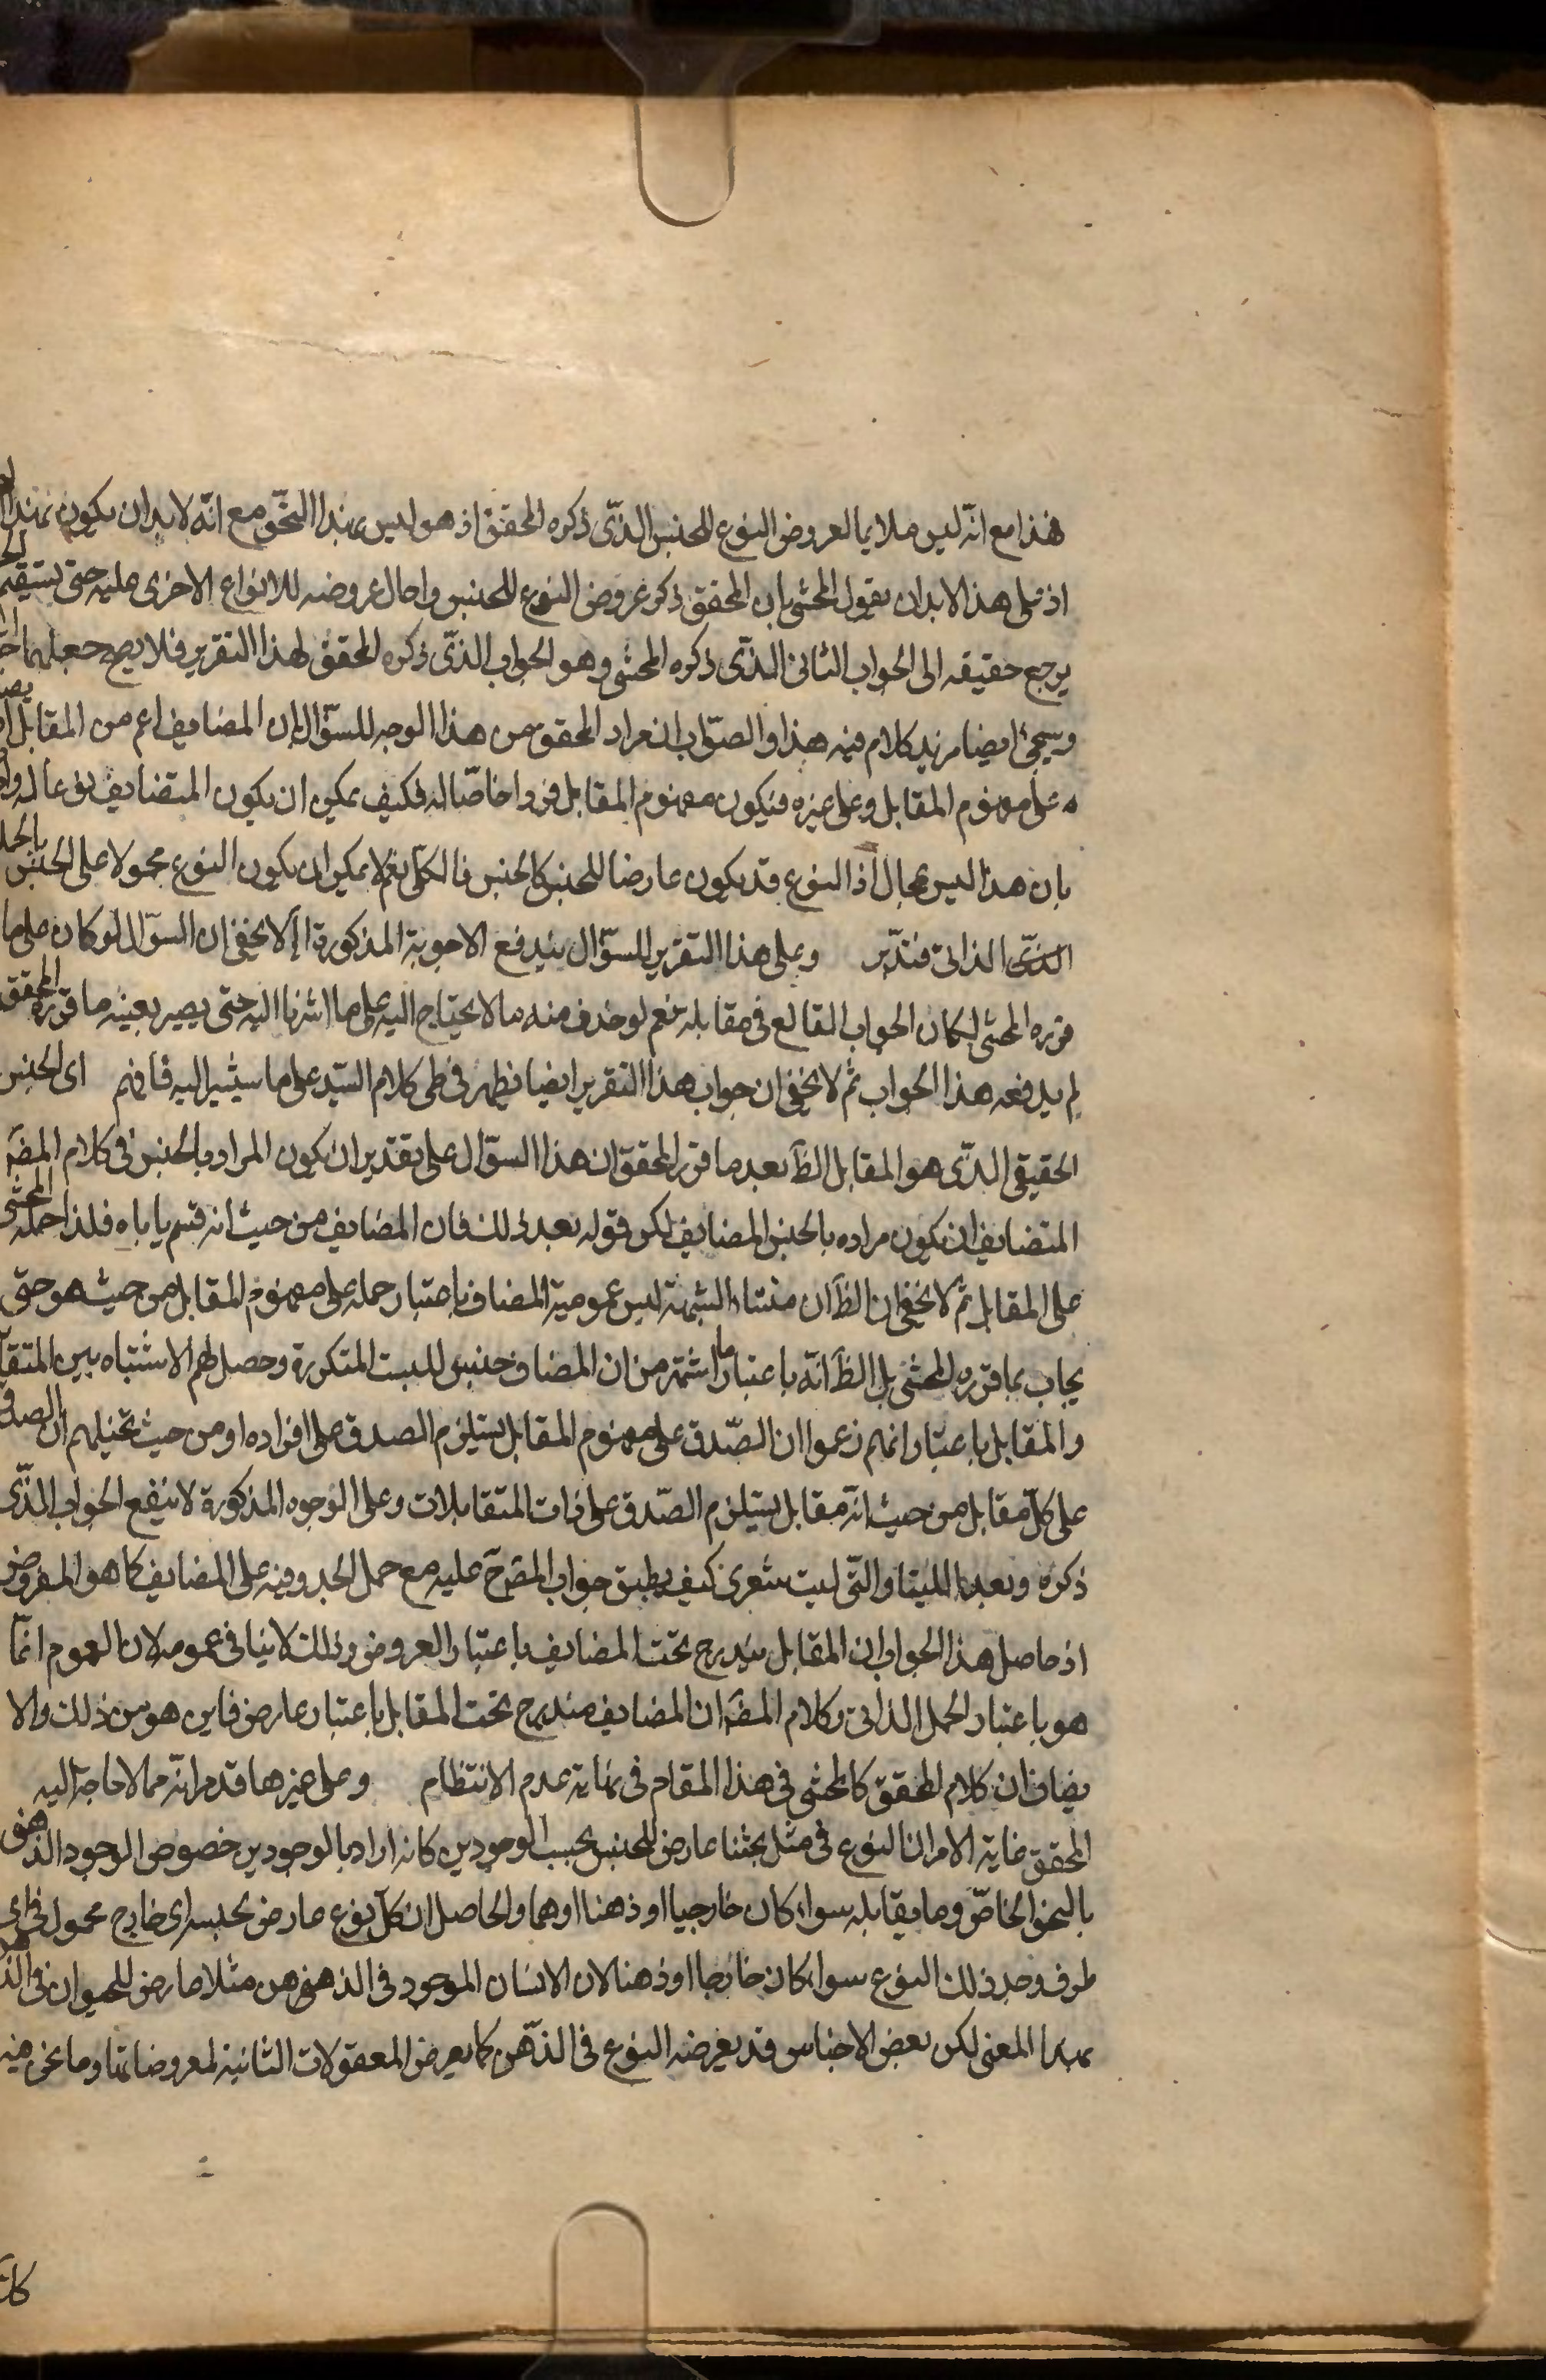 فهذا مع انه ليس ملايما لعروض النوع للجنس الذى ذكره المحقق اذ هو ليس بهذا النحو مع انه لابد ان يكون بهذا
اذ على هذا لابد ان يقول المحشى بان المحقق ذكر عروض النوع للجنس واحال عروضه للانواع الاخرى عليه حتى يستقيم
يرجع حقيقه الى الجواب الثانى الذى ذكره المحشى وهو الجواب الذى ذكره المحقق لهذا التقرير فلا يصح جعلهما
وسيجئ ايضا مزيد كلام فيه هذا والصواب ان مراد المحقق من هذا الوجه للسؤال ان المضايف اعم من المقابل
على مفهوم المقابل وعلى غيره فيكون مفهوم المقابل فردا خاصا له فكيف يمكن ان يكون المتضايف نوعا له
بان هذا ليس بمحال اذ النوع قد يكون عارضا للجنس كالجنس فى الكلى نعم لا يمكن ان يكون النوع محمولا على الجنس بالحمل
الذى الذاتى فتدبر وعلى هذا التقرير للسؤال يندفع الاجوبة المذكورة لا يخفى ان السؤال لو كان على ما
قرره المحشى لكان الجواب القالع فى مقابله نعم لو حذف منه ما لا يحتاج اليه على ما اشرنا اليه حتى يصير بعينه ما قرره المحقق
لم يدفعه هذا الجواب ثم لا يخفى ان جواب هذا التقرير ايضا يظهر فى طى كلام السيد على ما سيشير اليه فافهم اى الجنس
الحقيقى الذى هو المقابل الظ بعد ما قرر المحقق ان هذا السؤال على تقدير ان يكون المراد بالجنس فى كلام المض
المتضايف ان يكون مراده بالجنس المضايف لكن قوله بعد ذلك فان المضايف من حيث انه قسم ياباه فلذا حمله المحشى
على المقابل ثم لا يخفى ان الظ ان منشاء الشبهة ليس عمومية المضاف باعتبار حمله على مفهوم المقابل من حيث هو حتى
يجاب بما قرره المحشى بل الظ انه باعتبار ما اشتهر من ان المضاف جنس للنسبت المتكررة وحصل لهم الاشتباه بين
والمقابل باعتبار انهم زعموا ان الصدق على مفهوم المقابل يستلزم الصدق على افراده او من حيث تخيلهم ان الصدق
على كل مقابل من حيث انه مقابل يستلزم الصدق على ذات المتقابلات وعلى الوجوه المذكورة لا ينفع الجواب الذى
ذكره وبعد اللتيا والتى ليت شعرى كيف يطبق جواب المض عليه مع حمل الجد وفيه على المضايف كما هو المفروض
اذ حاصل هذا الجواب ان المقابل يندرج تحت المضايف باعتبار العروض وذلك لا ينافى عمومه لان العموم انما
هو باعتبار الحمل الذاتى وكلام المض ان المضايف مندرج تحت المقابل باعتبار عارض فاين هو من ذلك والا
يضاف ان كلام المحقق كالمحشى فى هذا المقام فى نهاية عدم الانتظام وعلى غيرها قد مر انه مما لا حاجة اليه
المحقق غاية الامر ان النوع فى مثل بحثنا عارض للجنس بحسب الوجودين كانه اراد بالوجودين خصوص الوجود الذهنى
بالنحو الخاص وما يقابله سواء كان خارجيا او ذهنا او هما والحاصل ان كل نوع عارض لجنسه اى خارج محمول فى اى
ظرف وجد ذلك النوع سواء كان خارجا او ذهنا لان الانسان الموجود فى الذهن مثلا عارض للحيوان فى
بهذا المعنى لكن بعض الاجناس قد يعرضه النوع فى الذهن كما يعرض المعقولات الثانية لمعروضاتها وما نحن فيه